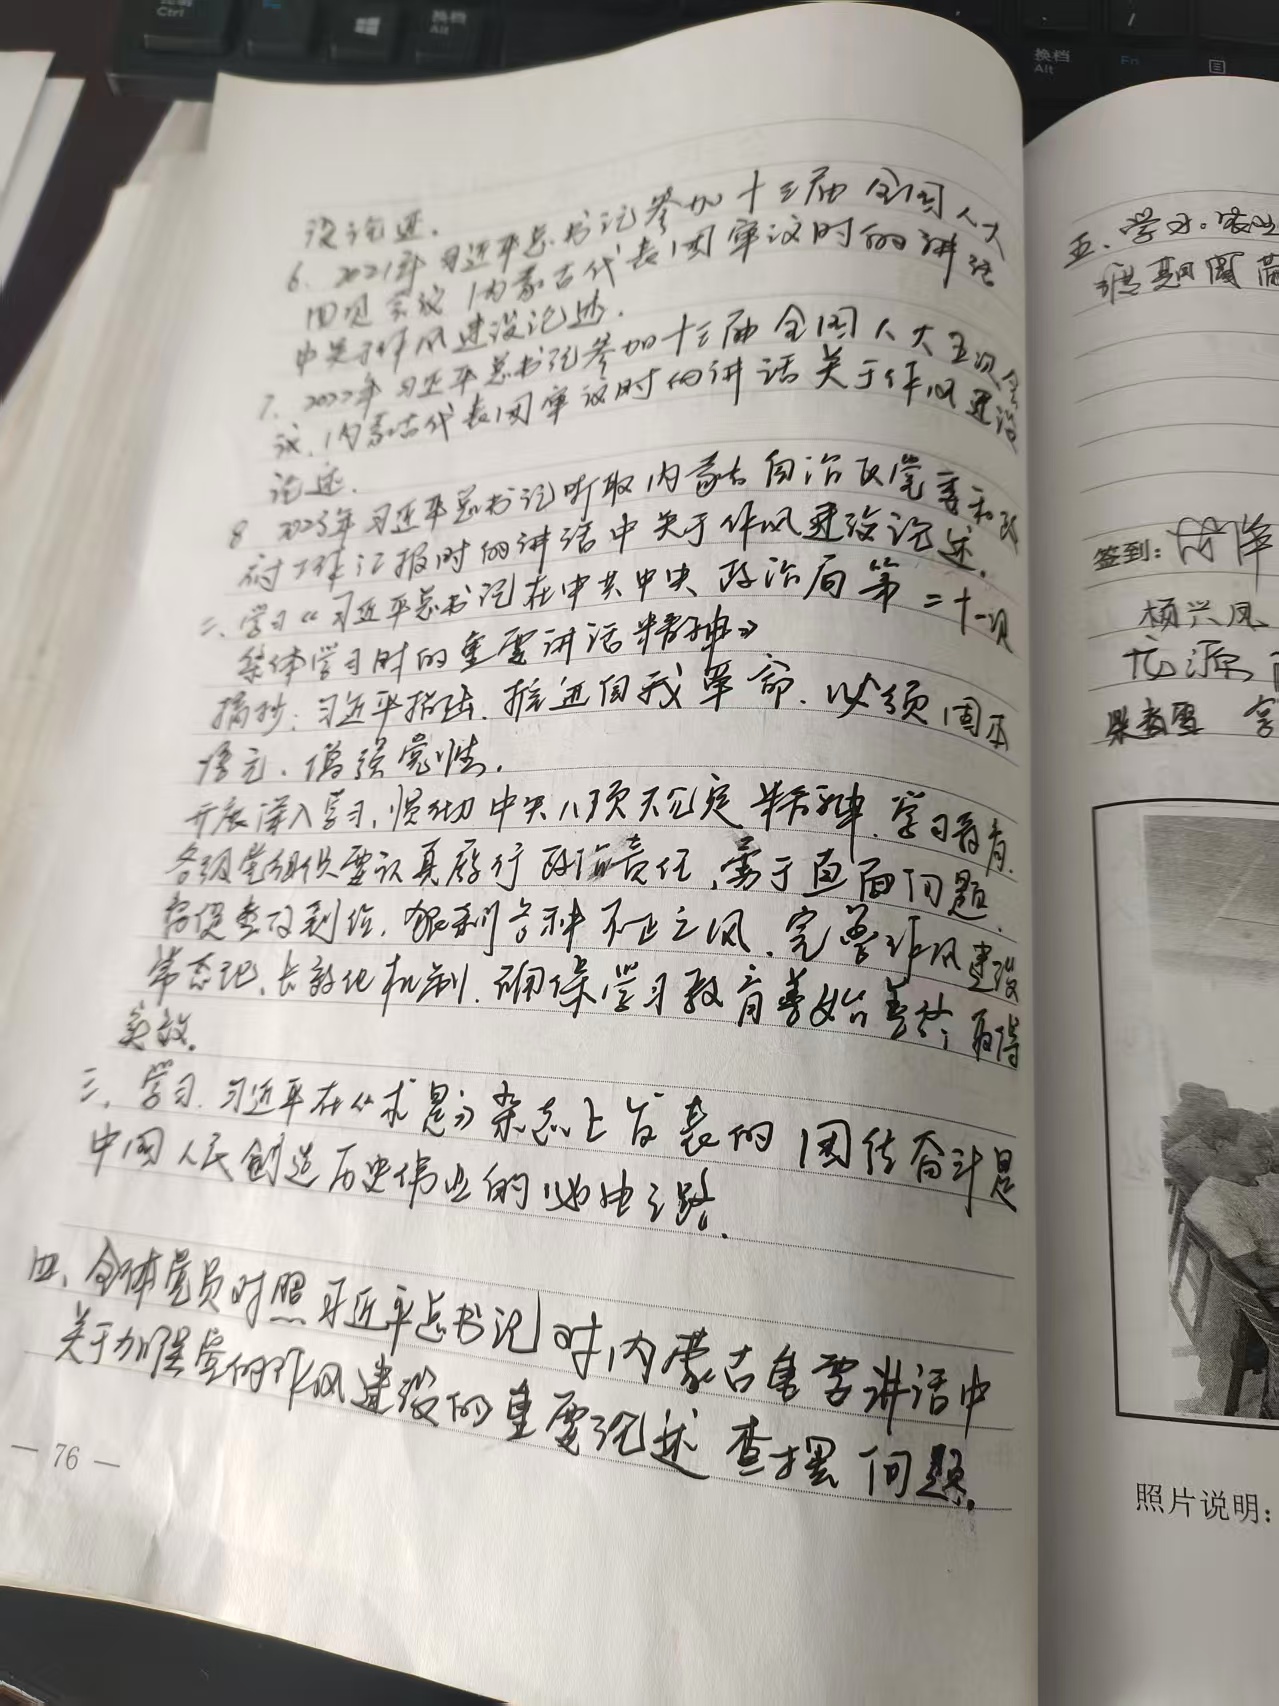 设论述.
6、2021年习近平总书记参加十三届全国人大
四次会议内蒙古代表团审议时的讲话
中关于作风建设论述.
7、2022年习近平总书记参加十三届全国人大五次会
议、内蒙古代表团审议时的讲话关于作风建设
论述.
8 2023年习近平总书记听取内蒙古自治区党委和政
府工作汇报时的讲话中关于作风建设论述.
二、学习《习近平总书记在中共中央政治局第二十一次
集体学习时的重要讲话精神》
摘抄:习近平指出.推进自我革命.必须固本
培元、增强党性.
开展深入学习,贯彻中央八项规定精神.学习教育.
各级党组织要认真履行政治责任、勇于直面问题.
整改到位,狠刹各种不正之风、完善作风建设
常态化、长效化机制.确保学习教育善始善终,取得
实效.
三、学习.习近平在《求是》杂志上发表的团结奋斗是
中国人民创造历史伟业的必由之路.
四、全体党员对照习近平总书记对内蒙古重要讲话中
关于加强党的作风建设的重要论述查摆问题.
— 76 —
五、学习
签到:
杨兴凤
照片说明:
换档
Alt
Fn
换档
Alt
Ctrl